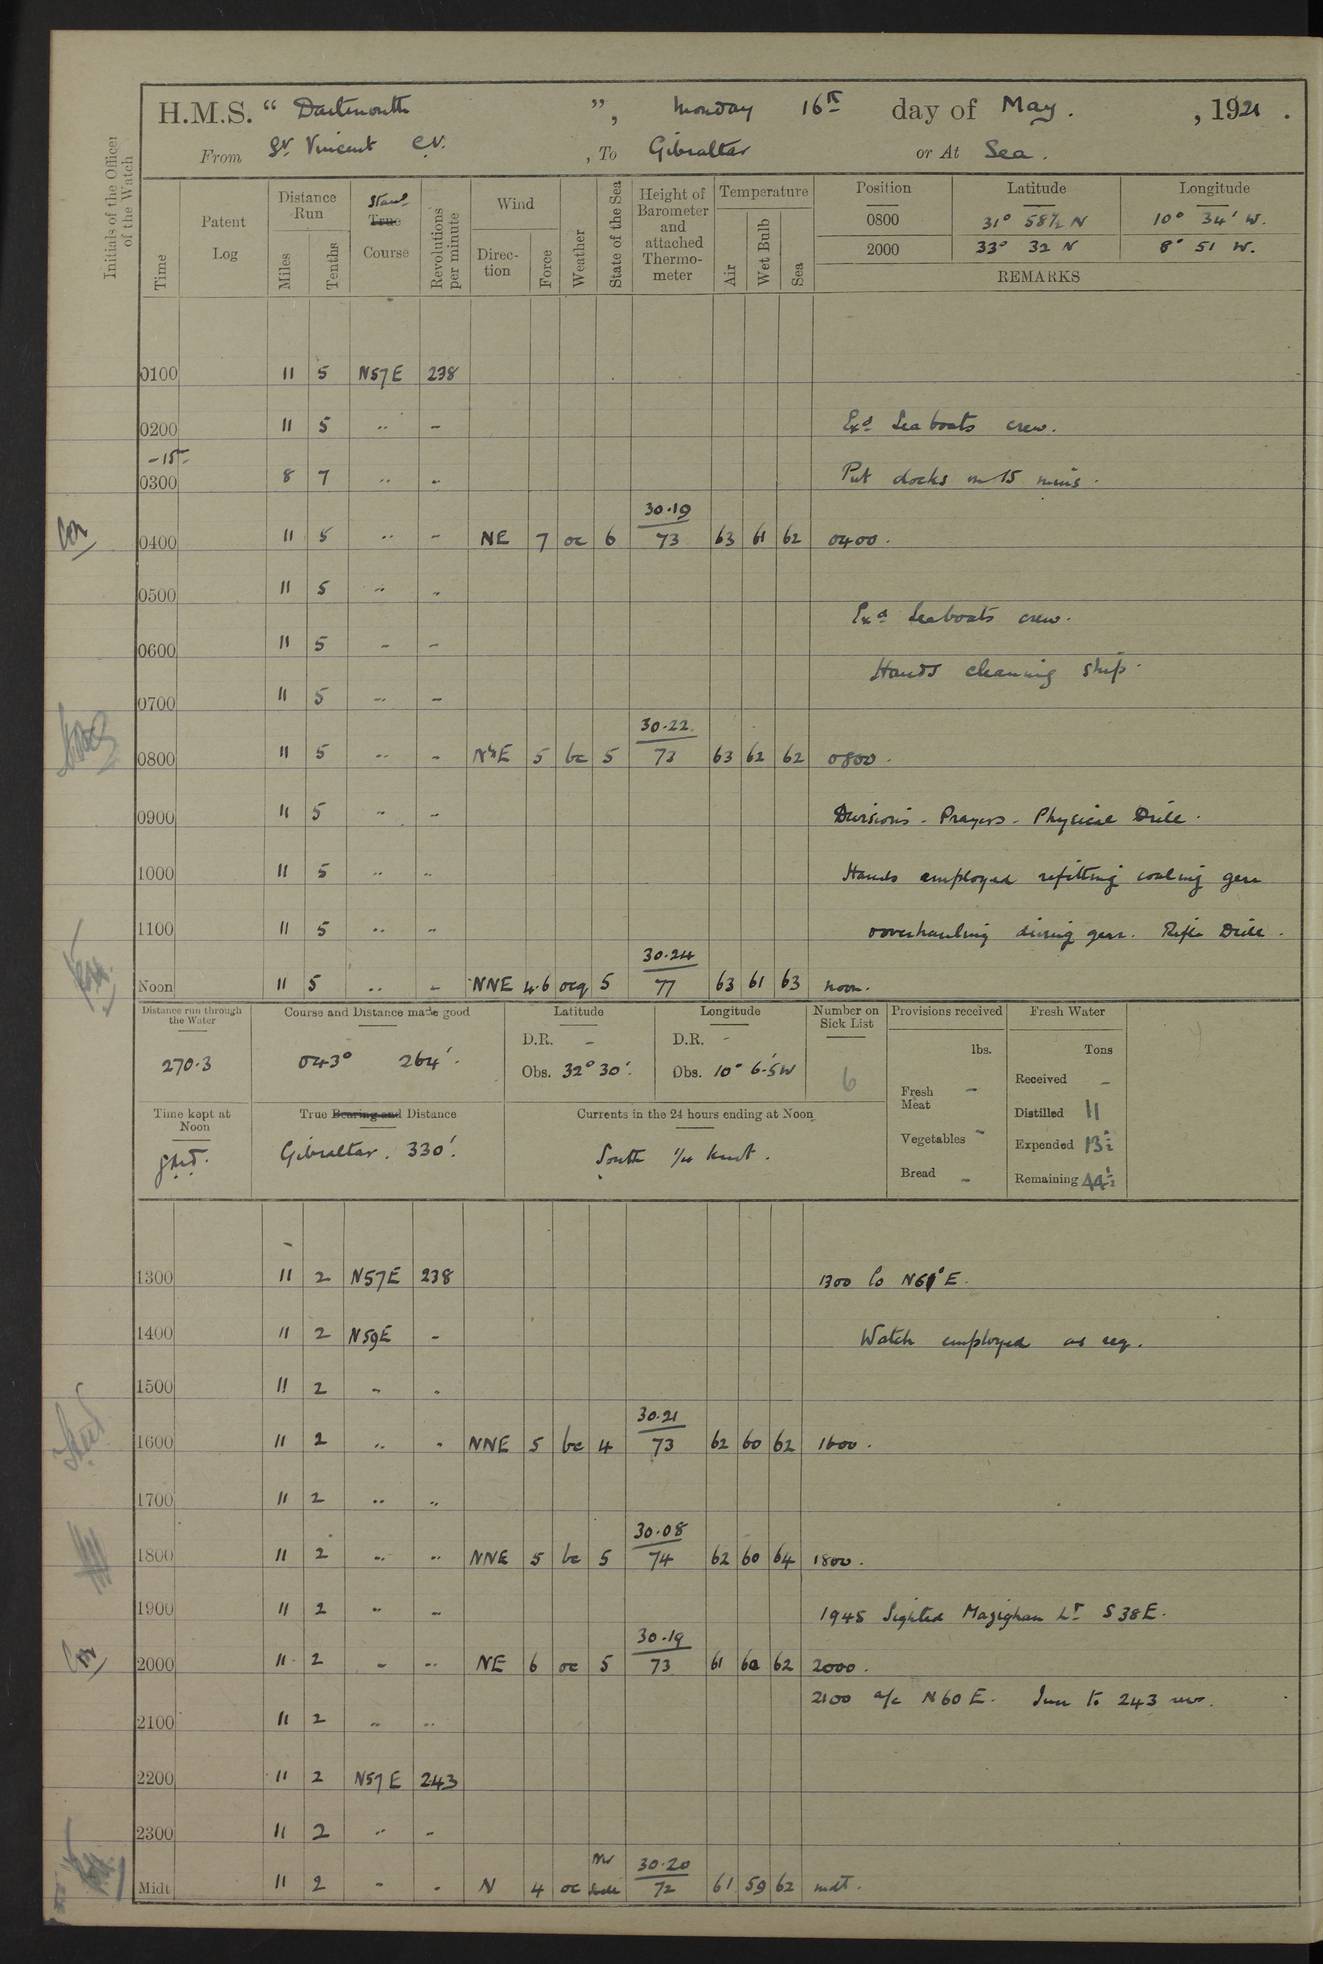 H.M.S. “ Dartmouth ”, Monday 16th day of May. , 1921 .
From St. Vincent C.V. , To Gibraltar or At Sea.
Initials of the Officer of the Watch
Time
Patent Log
Distance Run
Miles
Tenths
Stand.
True
Course
Revolutions per minute
Wind
Direction
Force
Weather
State of the Sea
Height of Barometer and attached Thermometer
Temperature
Air
Wet Bulb
Sea
Position Latitude Longitude
0800 31° 58½ N 10° 34' W.
2000 33° 32 N 8° 51 W.
REMARKS
0100 11 5 N57E 238
0200 11 5 .. - Exd Sea boats crew.
-15-
0300 8 7 .. - Put clocks on 15 mins.
30.19
0400 11 5 .. - NE 7 oc 6 73 63 61 62 0400.
0500 11 5 .. -
Exd Seaboats crew.
0600 11 5 - -
Hands cleaning ship.
0700 11 5 .. -
30.22
0800 11 5 .. - NbE 5 bc 5 73 63 62 62 0800.
0900 11 5 .. .. Divisions - Prayers - Physical Drill.
1000 11 5 .. .. Hands employed refitting coaling gear
1100 11 5 .. .. overhauling diving gear. Rifle Drill.
30.24
Noon 11 5 .. - NNE 4.6 ocq 5 77 63 61 63 noon.
Distance run through the Water
270.3
Course and Distance made good
043° 264'.
Latitude
D.R. -
Obs. 32° 30'.
Longitude
D.R. -
Obs. 10° 6.5' W
Number on Sick List
6
Provisions received
lbs.
Fresh Meat -
Vegetables -
Bread -
Fresh Water
Tons
Received -
Distilled 11
Expended 13½
Remaining 44½
Time kept at Noon
GMT.
True Bearing and Distance
Gibraltar. 330'.
Currents in the 24 hours ending at Noon
South ¼ knot.
1300 11 2 N57E 238 1300 Co N61°E.
1400 11 2 N59E - Watch employed as req.
1500 11 2 - -
30.21
1600 11 2 .. - NNE 5 bc 4 73 62 60 62 1600.
1700 11 2 .. ..
30.08
1800 11 2 .. .. NNE 5 bc 5 74 62 60 64 1800.
1900 11 2 .. .. 1945 Sighted Mazighan Lt S38E.
30.19
2000 11 2 - .. NE 6 oc 5 73 61 60 62 2000.
2100 a/c N60E. Inc to 243 revs.
2100 11 2 .. ..
2200 11 2 N57E 243
2300 11 2 .. -
30.20
Midt 11 2 - - N 4 oc 72 61 59 62 mdt.